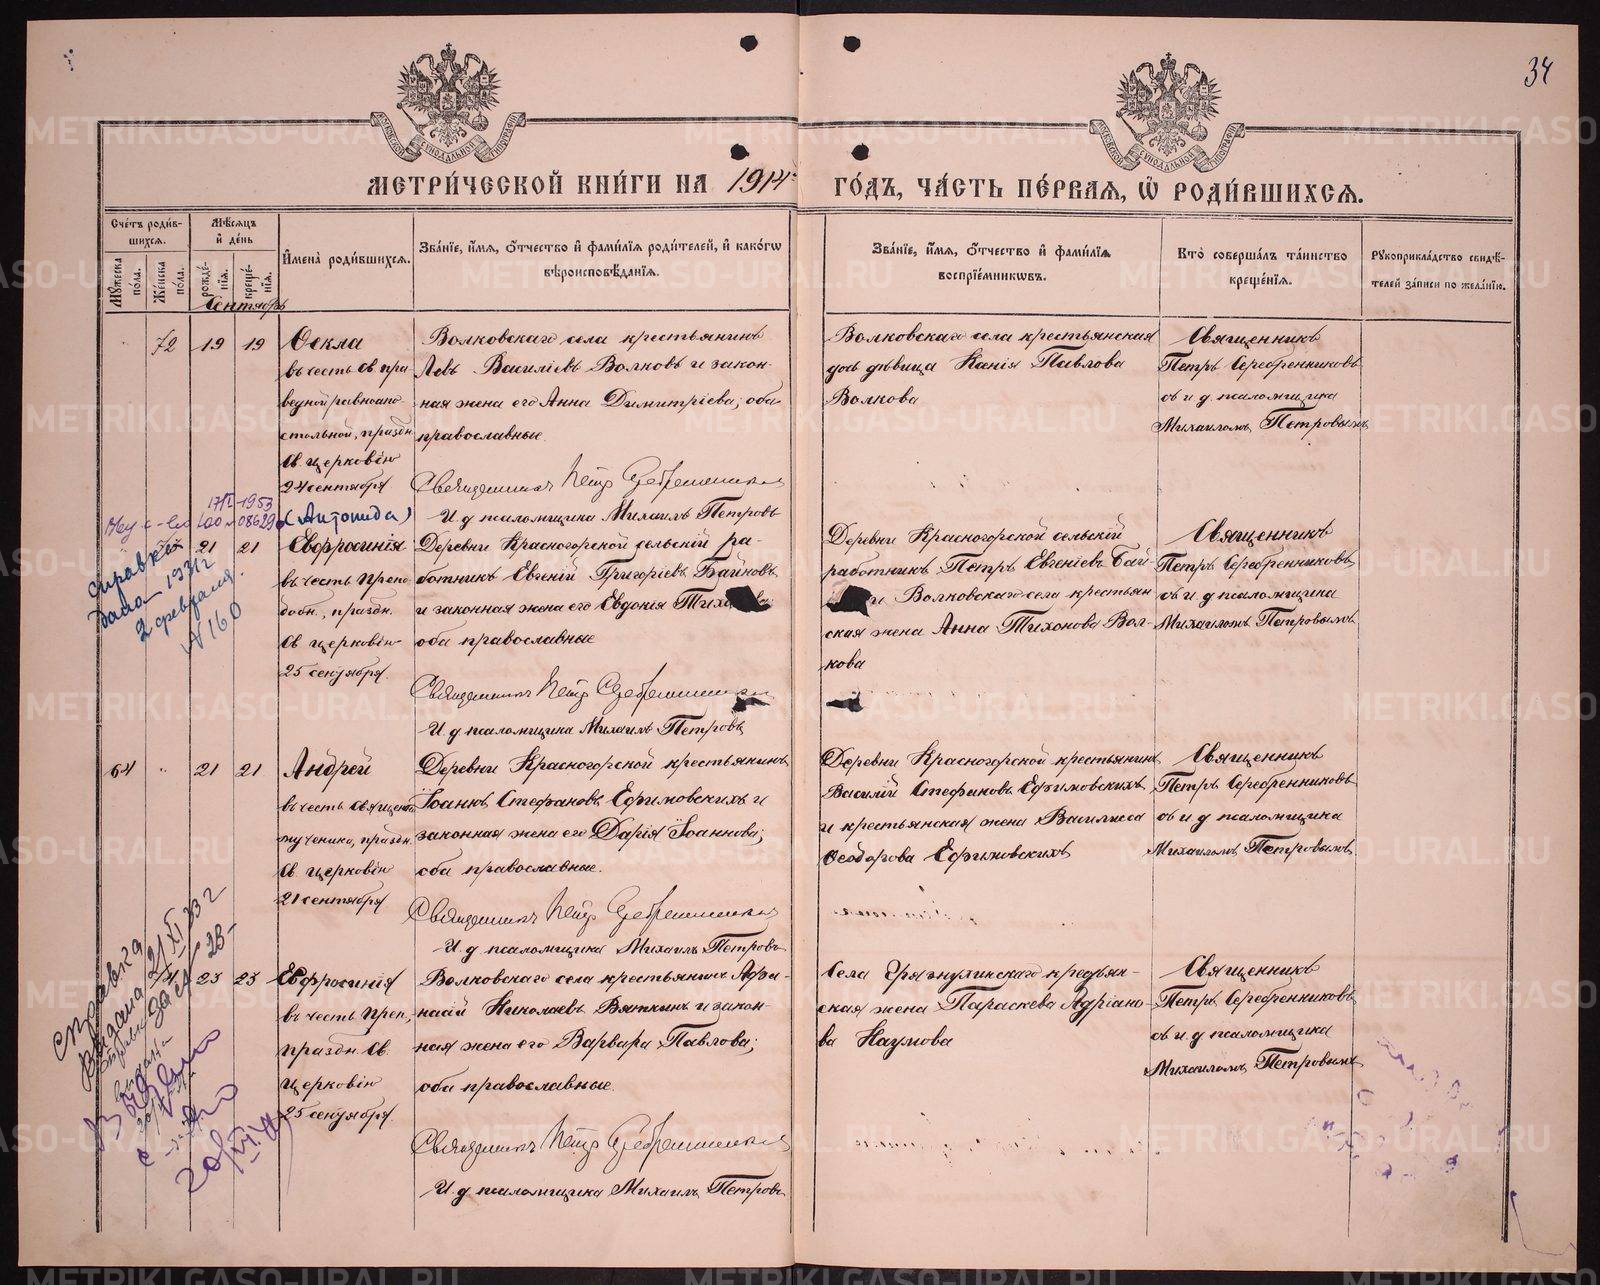 34
МЕТРИ́ЧЕСКОЙ КНИ́ГИ НА 1914 ГО́ДЪ, ЧА́СТЬ ПЕ́РВАЯ, Ѡ҆ РОДИ́ВШИХСЯ.
Сче́тъ роди́в-
шихся.
Мꙋ́жеска
по́ла.
Же́нска
по́ла.
Мѣ́сяцъ
и҆ де́нь
рожде́-
нїя.
креще́-
нїя.
И҆мена̀ роди́вшихся.
Зва́нїе, и҆́мя, ѻ҆́тчество и҆ фами́лїя роди́телей, и҆ како́гѡ
вѣроисповѣ́данїя.
Зва́нїе, и҆́мя, ѻ҆́тчество и҆ фами́лїя
воспрїе́мникѡвъ.
Кто̀ соверша́лъ та́инство
креще́нїя.
Рꙋкоприкла́дство свидѣ́-
телей за́писи по жела́нїю.
Сентябрь
72 19 19
Ѳекла
въ честь св. пра-
ведной равноапо
стольной, праздн.
св. церковію
24 сентября
Волковскаго села крестьянинъ
Левъ Василіевъ Волковъ и закон-
ная жена его Анна Димитріева, оба
православные.
Священникъ Петръ Серебренниковъ
И. д. псаломщика Михаилъ Петровъ
Волковскаго села крестьянская
дочь дѣвица Канія Павлова
Волкова
Священникъ
Петръ Серебренниковъ
съ и. д. псаломщика
Михаиломъ Петровымъ
1953
(Антонида)
справка
дана 1931 г
2 февраля.
№ 160
21 21
Евфросинія
въ честь препо
добн., праздн.
св. церковію
25 сентября.
Деревни Красногорской сельскій ра-
ботникъ Евгеній Григоріевъ Байновъ
и законная жена его Евдокія
оба православные
Священникъ Петръ Серебренниковъ
И. д. псаломщика Михаилъ Петровъ
Деревни Красногорской сельскій
работникъ Петръ Евгеніевъ Бай-
и Волковскаго села крестьян
ская жена Анна Тихонова Вол-
кова
Священникъ
Петръ Серебренниковъ
съ и. д. псаломщика
Михаиломъ Петровымъ
64 21 21
Андрей
въ честь священно
мученика, праздн.
св. церковію
21 сентября
Деревни Красногорской крестьянинъ
Іоаннъ Стефановъ Ефимовскихъ и
законная жена его Дарія Іоаннова;
оба православные.
Священникъ Петръ Серебренниковъ
И. д. псаломщика Михаилъ Петровъ
Деревни Красногорской крестьянинъ
Василій Стефановъ Ефимовскихъ
и крестьянская жена Василисса
Ѳеодорова Ефимовскихъ
Священникъ
Петръ Серебренниковъ
съ и. д. псаломщика
Михаиломъ Петровымъ
справка
Выдана 21/XI 33 г
23 23
Евфросинія
въ честь преп.,
праздн. св.
церковію
25 сентября.
Волковскаго села крестьянинъ Афа-
насій Николаевъ Вяткинъ и закон-
ная жена его Варвара Павлова;
оба православные.
Священникъ Петръ Серебренниковъ
И. д. псаломщика Михаилъ Петровъ
Села Грязнухинскаго крестьян-
ская жена Параскева Адріано-
ва Наумова
Священникъ
Петръ Серебренниковъ
съ и. д. псаломщика
Михаиломъ Петровымъ
METRIKI.GASO-URAL.RU